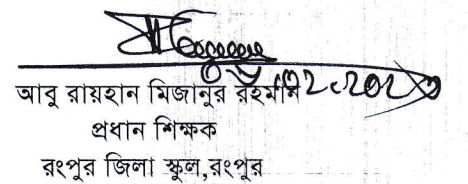 আবু রায়হান মিজানুর রহমান
প্রধান শিক্ষক
রংপুর জিলা স্কুল,রংপুর